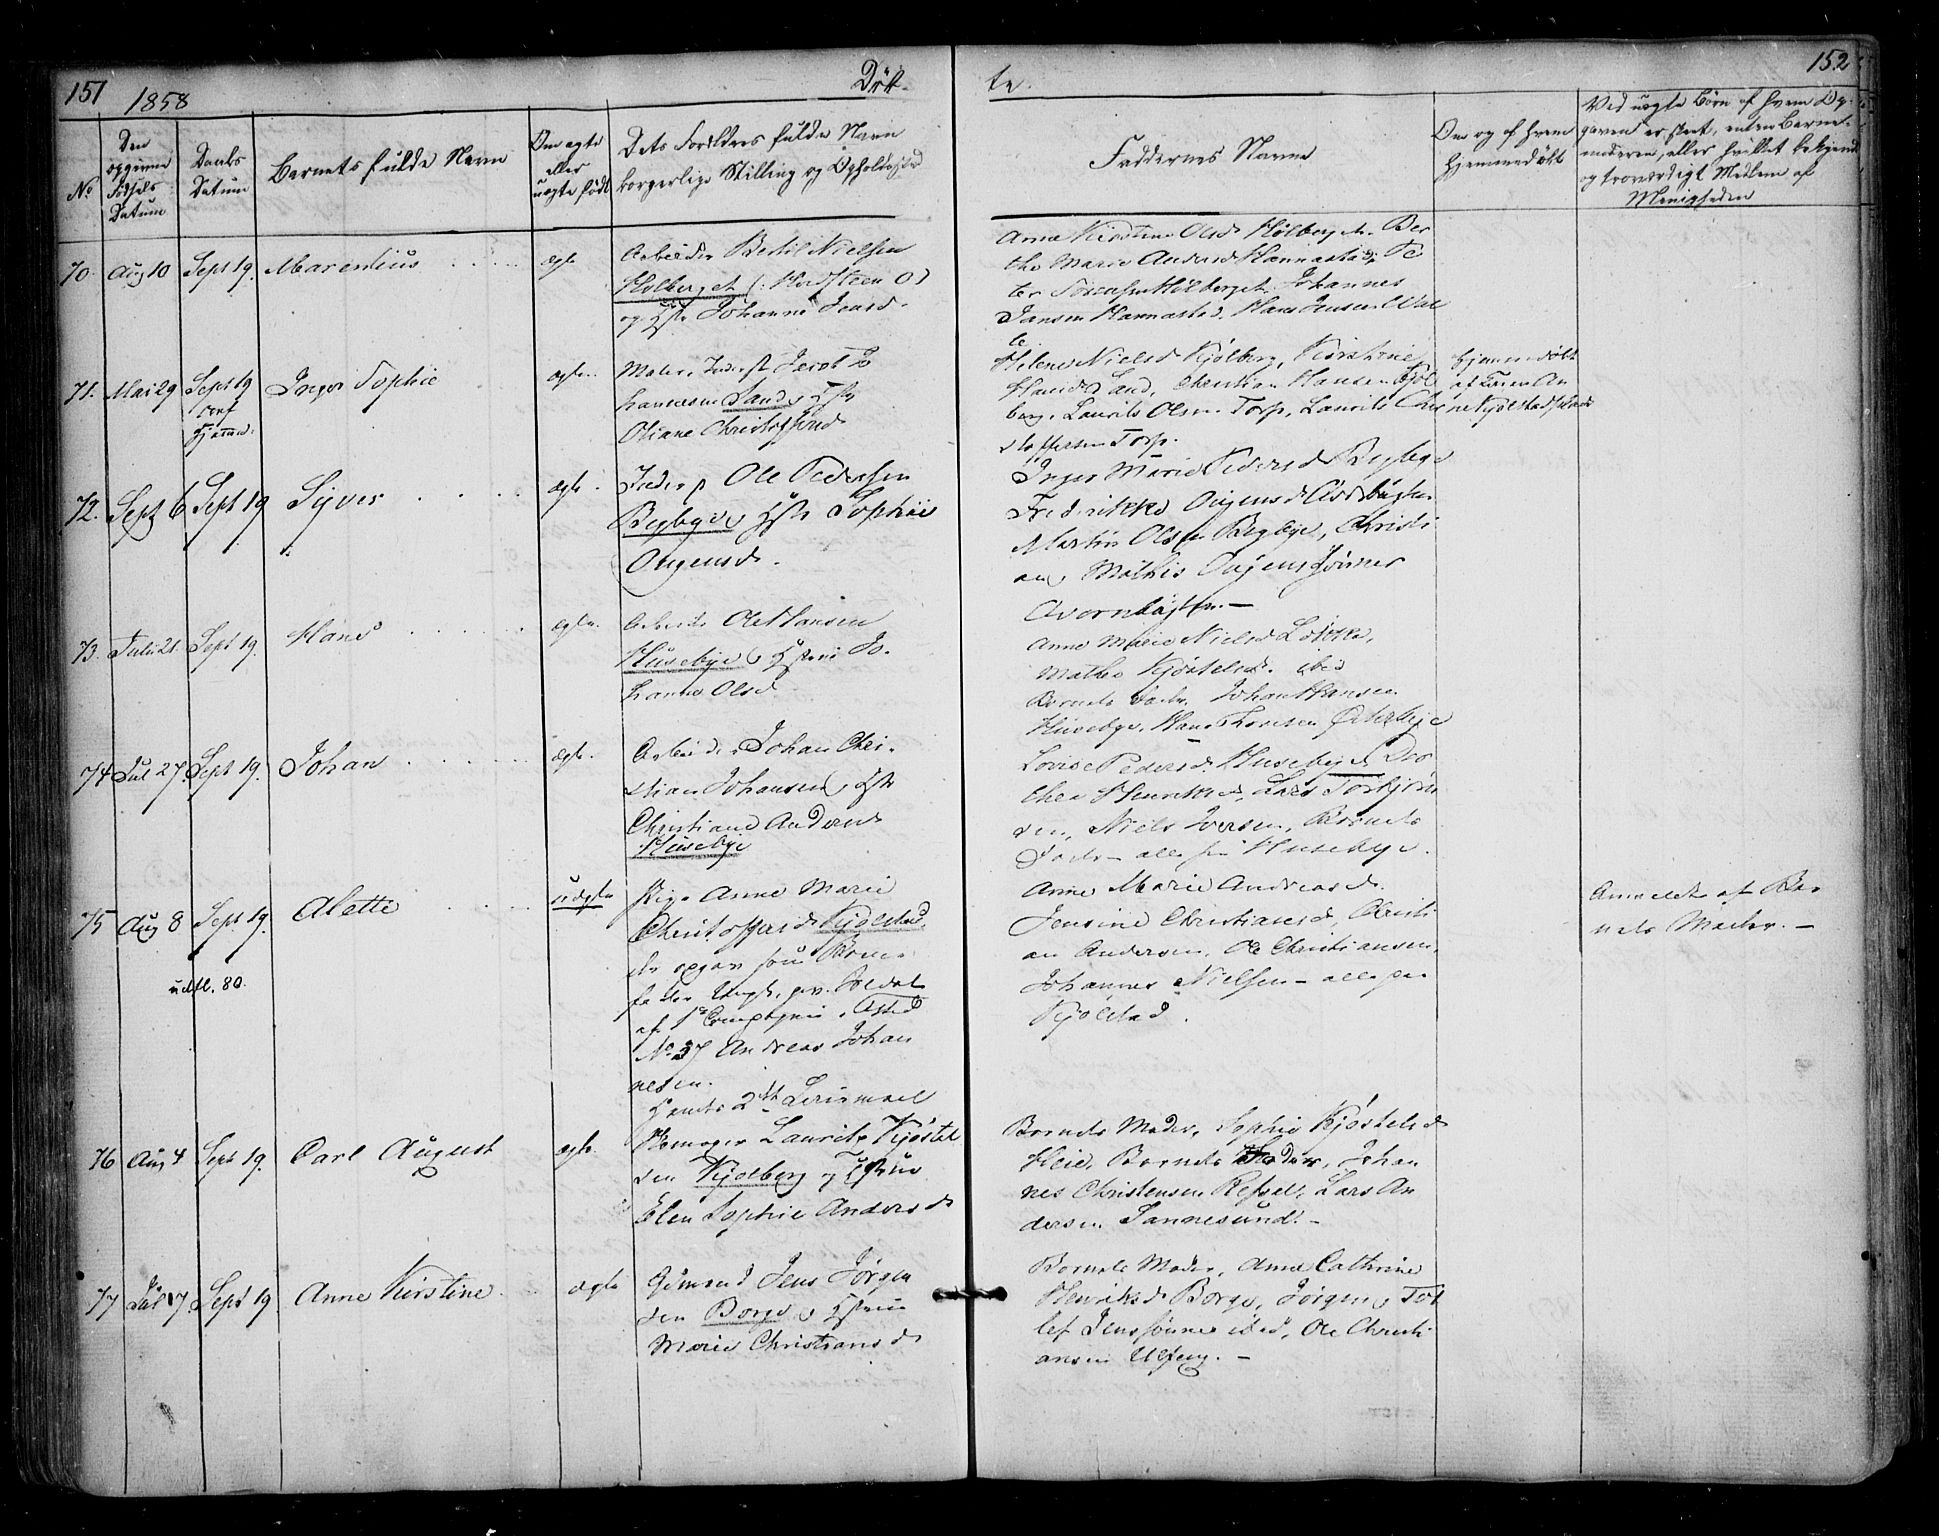 151
1858
Döb
te.
152
No
Den opgivne Fødsels Datum
Daabs Datum
Barnets fulde Navn
Om ægte eller uægte født
Dets Forældres fulde Navn
borgerlige Stilling og Opholdssted
Faddernes Navne
Om og af hvem hjemmedøbt
Ved uægte Børn af hvem Op-
gaven er skeet, enten Barne-
moderen, eller hvilket bekjendt
og troværdigt Medlem af
Menigheden
70. Aug 10 Sept 19. Marentius ægte
Arbeider Bertil Nielsen
Holberget
og Hstr Johanne Jensd.
Anne Kirstine Olsd Holberget. Ber
the Marie Andersd Hannestad, Pe
ter Holberget. Johannes
Jansen Hannestad. Hans Jensen Wal
le.
71. Mai 29 Sept 19 Inger Sophie ægte
conf
hjemmed.
Jacob Jo
hannesen Sand, Hstr
Oliane Christoffersd
Helene Nielsd Kjølberg, Kirstine
Hansd Sand, Christian Hansen Kjøl
berg, Laurits Olsen Torp, Laurits Chri
stoffersen Torp.
Hjemmedøbt
af Karen An
ne Kjølstad
72. Sept 6 Sept 19 Syver ægte
Inders Ole Pedersen
Begbye, Hstr Sophie
Ougensd.
Inger Marie Pedersd Begbye
Fredrikke Ougensd
Martin Olsen Begbye, Christi
an, Mathis Ougens Sønner
73. Juli 21. Sept 19. Hans ægte
Arbeider Ole Hansen
Husebye, Hstrue Jo
hanne Olsd
Anne Marie Nielsd Løkke,
Mathea Kjøstelsd. ibid
Barnets Fader. Johan Hansen
Husebye. Hans Østerbye
74 Jul 27. Sept 19. Johan ægte.
Arbeider Johan Chri-
stian Johansen, Hstr
Christiane Andersd
Husebye
Lovise Pedersd. Husebye, Do
thea Henriksd, Lars Torbjørn
sen, Niels Iversen, Barnets
Fader – alle fra Husebye.
75 Aug 8 Sept 19. Alette uægte
udfl. 80.
Pige Anne Marie
Christoffersd Kjølstad,
der opgav som Barne-
fader Ungk. gev. Soldat
af 1ste Compagnie
No 37 Andreas Johan
nesen.
Hendes 2det Leiermaal
Anne Marie Andreasd.
Jensine Christiansd, Christi
an Andersen, Ole Christiansen,
Johannes Nielsen – alle paa
Kjølstad.
Anmeldt af Bar
nets Moder. –
76 Aug 4 Sept 19. Carl August ægte
Skomager Laurits Kjøstel
sen Kjølberg og Hstrue
Elen Sophie Andersd
Barnets Moder, Sophie Kjøstelsd
Heie, Barnets Fader, Johan
nes Christensen Refsel, Lars An
dersen Sannesund. –
77 Jul 17 Sept 19 Anne Kirstine ægte
Gdmand Jens Jørgen
sen Borge, Hstrue
Marie Christiansd
Barnets Moder, Anne Cathrine
Henriksd Borge, Jørgen, Tol
lef Jenssønner ibid, Ole Christi
ansen Ulfeng. –